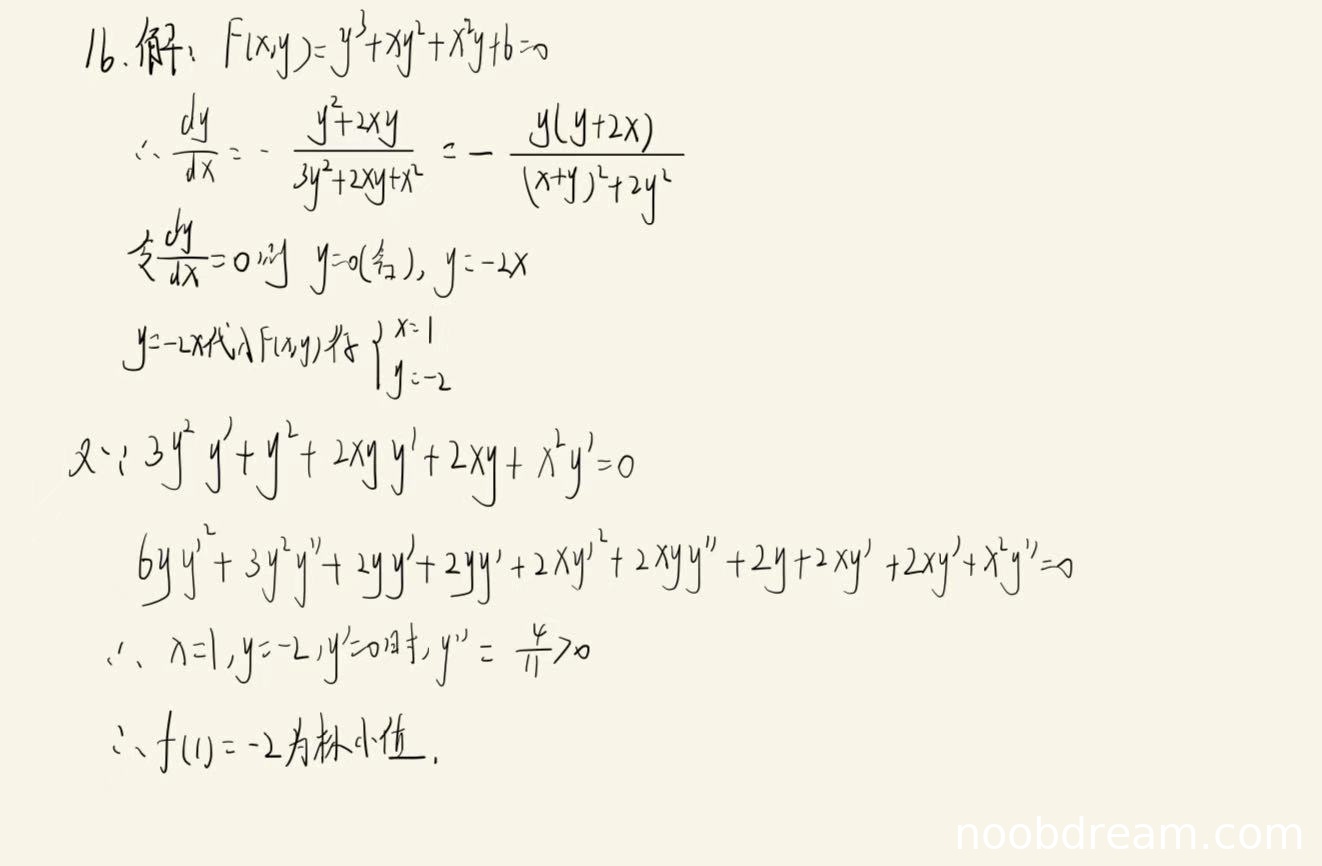 16.解: F(x,y)=y³+xy²+x²y+6=0
∴ dy/dx = - (y²+2xy)/(3y²+2xy+x²) = - y(y+2x)/((x+y)²+2y²)
令 dy/dx =0 时 y=0(舍), y=-2x
y=-2x代入F(x,y)得 { x=1 y=-2
又∵ 3y² y'+y²+2xy y'+2xy+x²y'=0
6yy'²+3y²y''+2yy'+2yy'+2xy'²+2xyy''+2y+2xy'+2xy'+x²y''=0
∴ x=1,y=-2,y'=0时,y''= 4/11 >0
∴ f(1)=-2为极小值.
noobdream.com